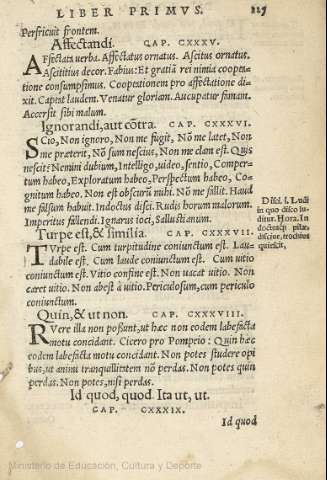 LIBER PRIMVS. 227
Perfricuit frontem.
Affectandi. CAP. CXXXV.
AFfectata uerba. Affectatus ornatus. Ascitus ornatus.
Ascititius decor. Fabius: Et gratiã rei nimia coopta-
tione consumpsimus. Cooptationem pro affectatione di-
xit. Captat laudem. Venatur gloriam. Aucupatur famam.
Accersit sibi malum.
Ignorandi, aut cõtra. CAP. CXXXVI.
SCio, Non ignoro, Non me fugit, Nõ me latet, Non
me præterit, Nõ sum nescius, Non me clam est. Quis
nescit? Nemini dubium, Intelligo, uideo, sentio, Comper-
tum habeo, Exploratum habeo, Perspectum habeo, Co-
gnitum habeo. Non est obscurũ mihi. Nõ me fallit. Haud
me falsum habuit. Indoctus disci. Rudis horum malorum.
Imperitus fallendi. Ignarus loci, Sallustianum.
Disci. i. Ludi
in quo disco lu-
ditur. Hora. In
doctusq; pilæ,
disciue, trochiue
quiescit,
Turpe est, & similia. CAP. CXXXVII.
TVrpe est. Cum turpitudine coniunctum est. Lau-
dabile est. Cum laude coniunctum est. Cum uitio
coniunctum est. Vitio confine est. Non uacat uitio. Non
caret uitio. Non abest à uitio. Periculosum, cum periculo
coniunctum.
Quin, & ut non. CAP. CXXXVIII.
RVere illa non possunt, ut hæc non eodem labefacta
motu concidant. Cicero pro Pompeio: Quin hæc
eodem labefacta motu concidant. Non potes studere opi
bus, ut animi tranquillitatem nõ perdas. Non potes quin
perdas. Non potes, nisi perdas.
Id quod, quod. Ita ut, ut.
CAP. CXXXIX.
Id quod
Ministerio de Educación, Cultura y Deporte